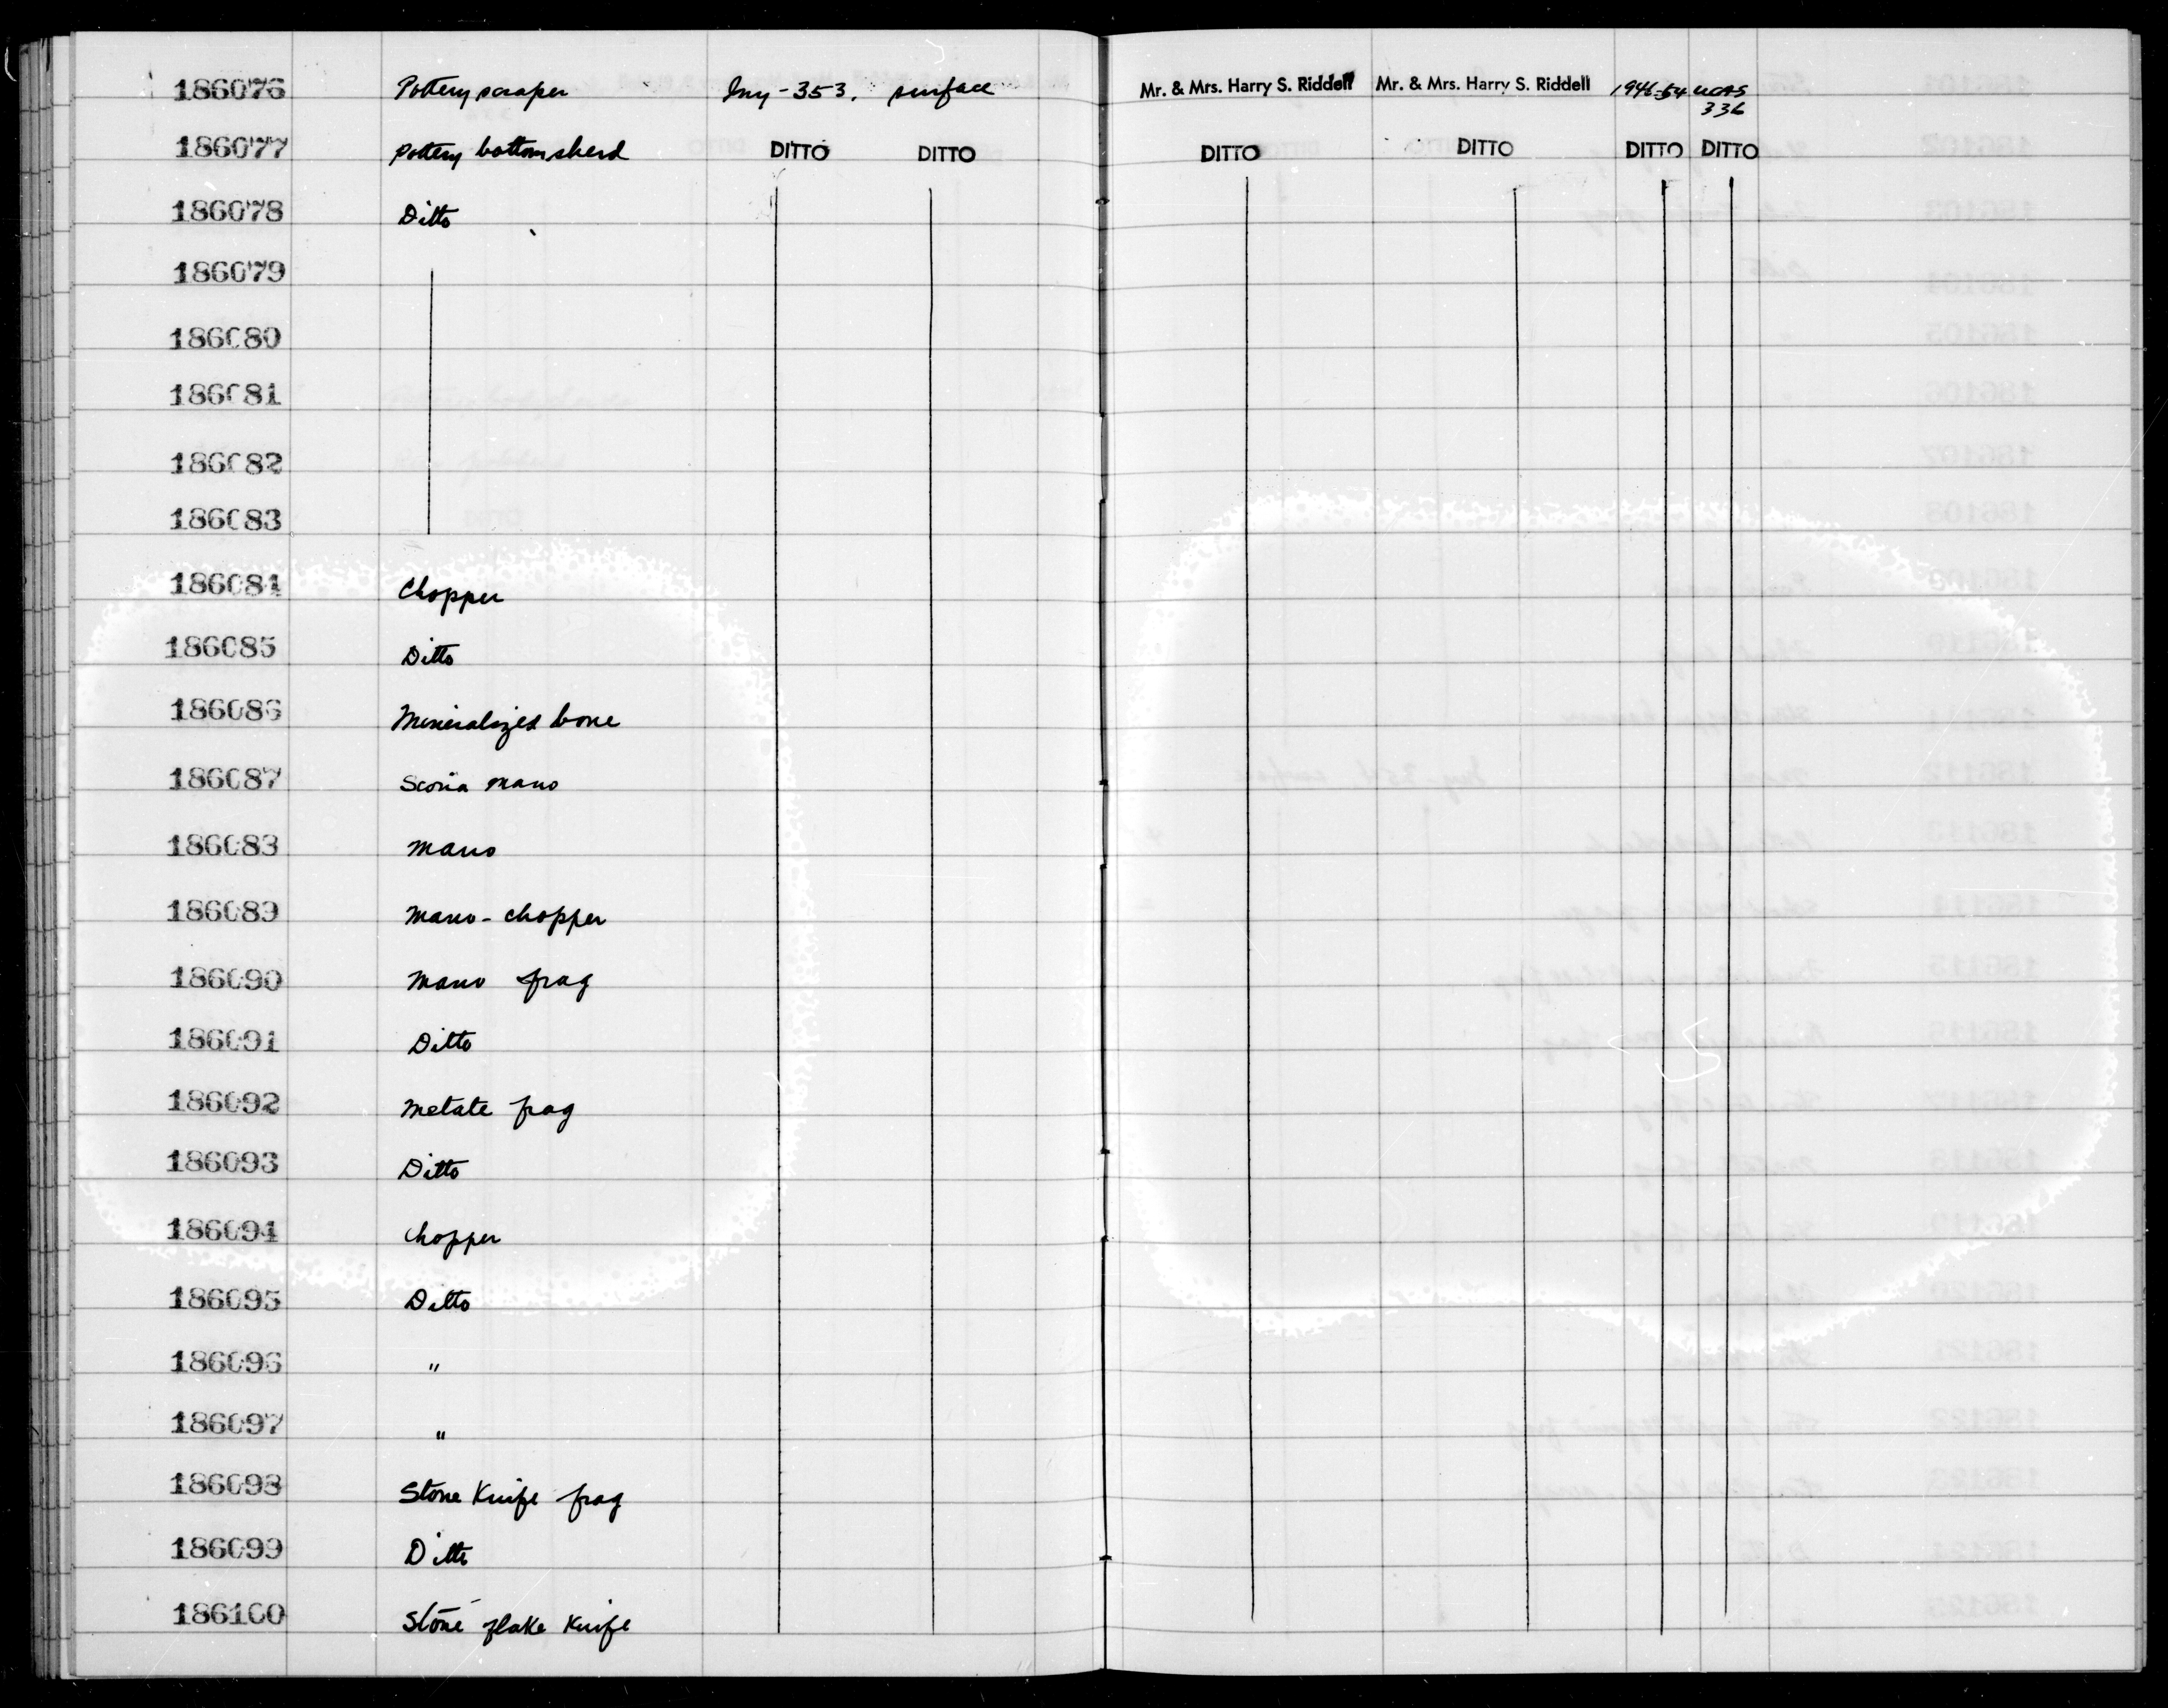 186076 Pottery scraper Iny-353. surface Mr. & Mrs. Harry S. Riddell Mr. & Mrs. Harry S. Riddell 1946-54 UCAS
336
186077 Pottery bottom sherd DITTO DITTO DITTO DITTO DITTO DITTO
186078 Ditto
186079
186080
186081
186082
186083
186084 Chopper
186085 Ditto
186086 Mineralized bone
186087 Scoria mano
186088 Mano
186089 Mano-chopper
186090 Mano frag
186091 Ditto
186092 Metate frag
186093 Ditto
186094 Chopper
186095 Ditto
186096 "
186097 "
186098 Stone Knife frag
186099 Ditto
186100 Stone flake Knife